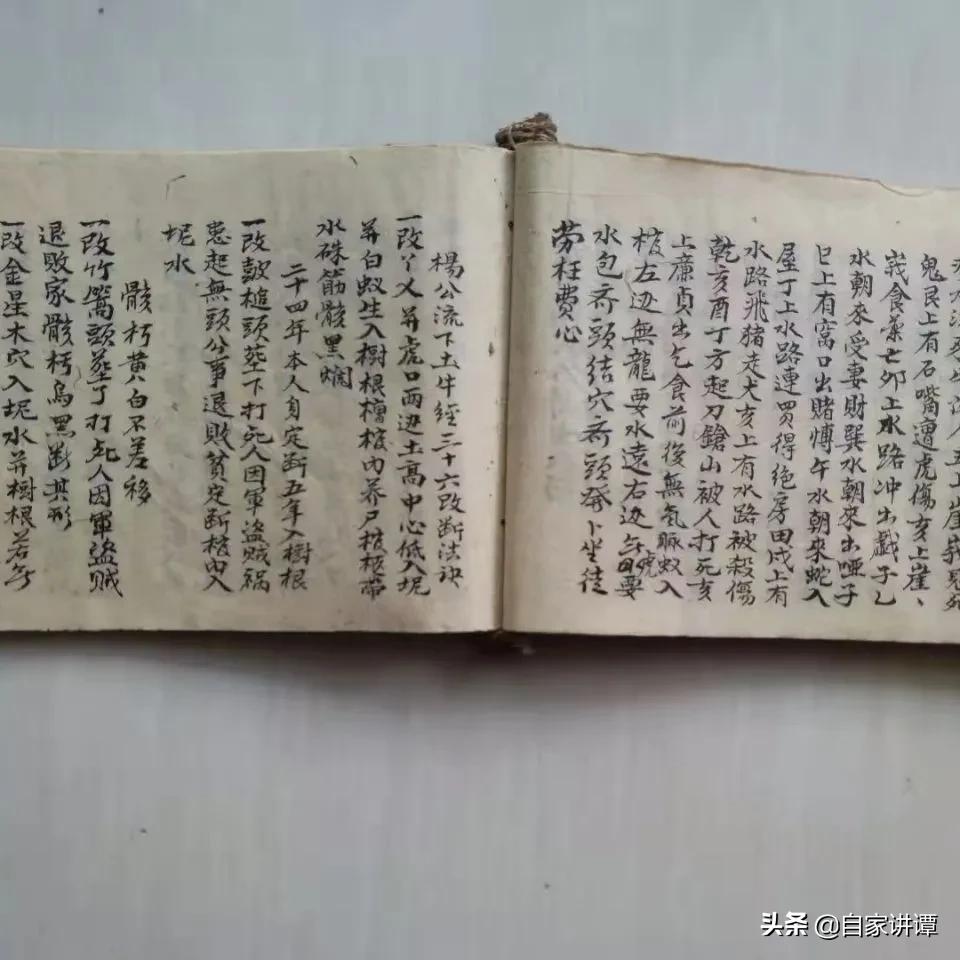 鬼艮上有石嘴遭虎傷亥上崖、
峩食藥亡卯上水路冲出戯子乙
水朝來受妻財巽水朝來出啞子
巳上有窩口出賭慱午水朝來蛇入
屋丁上水路連買得絶房田戌上有
水路飛猪走犬亥上有水路被殺傷
乾亥酉丁方起刀鎗山被人打死亥
上廉貞出乞食前後無氣脉蚁入
棺左边無龍要水遠右边無虎要
水包斎頭結穴斎頭發卜坐徒
劳枉費心
楊公流下土牛經三十六改断法訣
一改丫乂并虎口兩边土高中心低入坭
并白蚁生入樹根檜板内养尸棺板帶
水硃筋骸黑爛
二十四年本人自定断五年入樹根
一改皷槌頭塟下打死人因軍盗贼祸
患起無頭公事退敗貧定断棺内入
坭水
骸朽黄白不差移
一改竹篙頭塟丁打死人因軍盗贼
退敗家骸朽烏黑断其形
一改金星木穴入坭水并樹根若無
头条 @自家讲谭